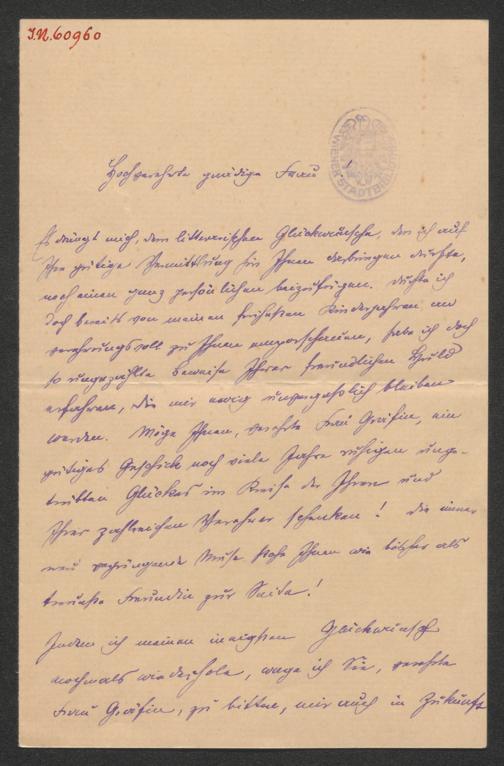 I.N. 60960
WIENER STADTBIBLIOTHEK
Hochverehrte gnädige Frau
Es drängt mich, dem litterarischen Glückwunsche, den ich auf
Ihre gütige Vermittlung hin Ihnen darbringen durfte,
noch einen ganz persönlichen beizufügen. Durfte ich
doch bereits von meinen frühesten Kinderjahren an
verehrungsvoll zu Ihnen emporschauen, habe ich doch
so ungezählte Beweise Ihrer freundlichen Huld
erfahren, die mir ewig unvergesslich bleiben
werden. Möge Ihnen, verehrte Frau Gräfin, ein
gütiges Geschick noch viele Jahre ruhigen unge-
trübten Glückes im Kreise der Ihren und
Ihrer zahlreichen Verehrer schenken! Die immer
neu verjüngende Muse stehe Ihnen wie bisher als
treueste Freundin zur Seite!
Indem ich meinen innigsten Glückwunsch
nochmals wiederhole, wage ich Sie, verehrte
Frau Gräfin, zu bitten, mir auch in Zukunft